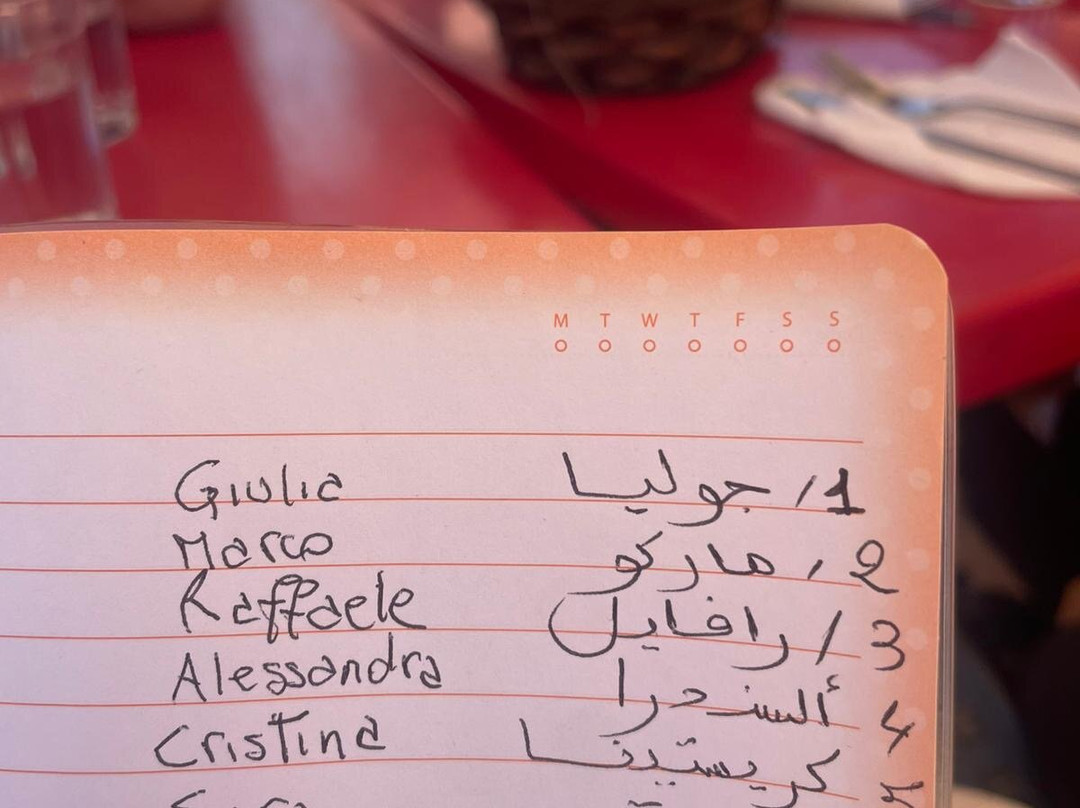 M T W T F S S
Giulia جوليا /1
Marco ماركو /2
Raffaele رافايل /3
Alessandra ألسندرا 4
Cristina كريستينا